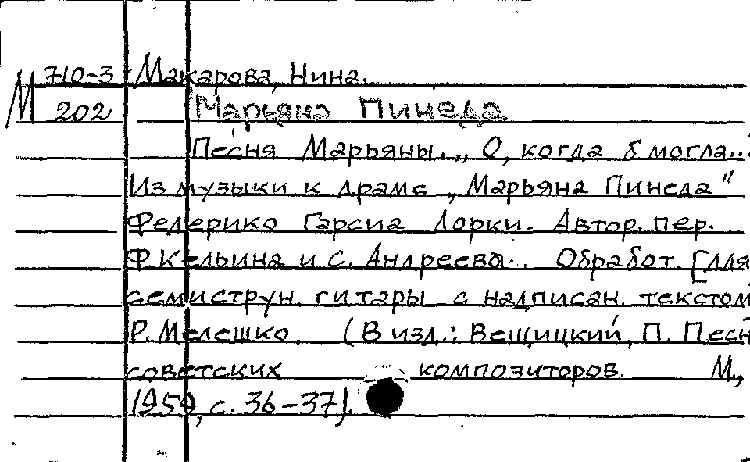 М 710-3 Макарова, Нина.
202 Марьяна Пинеда
Песня Марьяны. „О, когда б могла..."
Из музыки к драме „Марьяна Пинеда"
Федерико Гарсиа Лорки. Автор. пер.
Ф. Кельина и С. Андреева. Обработ. [для
семиструн. гитары с надписан. текстом
Р. Мелешко. (В изд.: Вещицкий, П. Песн
советских композиторов. М.,
1959, с. 36-37).